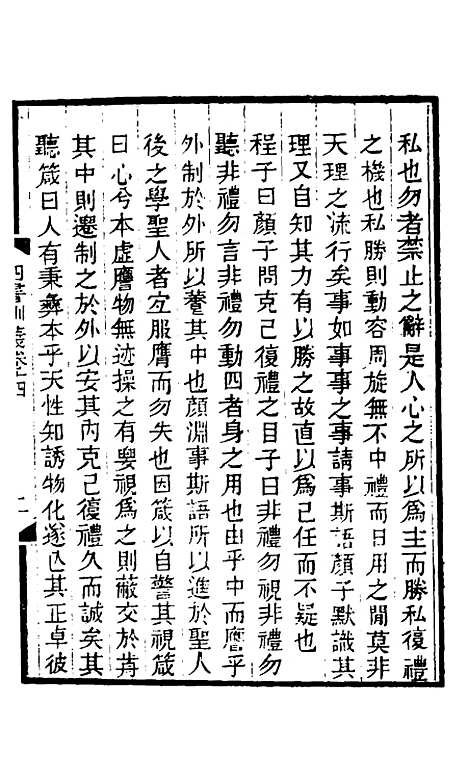 私也勿者禁止之辭是人心之所以爲主而勝私復禮
之機也私勝則動容周旋無不中禮而日用之閒莫非
天理之流行矣事如事事之事請事斯語顏子默識其
理又自知其力有以勝之故直以爲己任而不疑也
程子曰顏子問克己復禮之目子曰非禮勿視非禮勿
聽非禮勿言非禮勿動四者身之用也由乎中而應乎
外制於外所以養其中也顏淵事斯語所以進於聖人
後之學聖人者宜服膺而勿失也因箴以自警其視箴
曰心兮本虛應物無迹操之有要視爲之則蔽交於前
其中則遷制之於外以安其內克己復禮久而誠矣其
聽箴曰人有秉彝本乎天性知誘物化遂亾其正卓彼
四書訓義卷十四
二